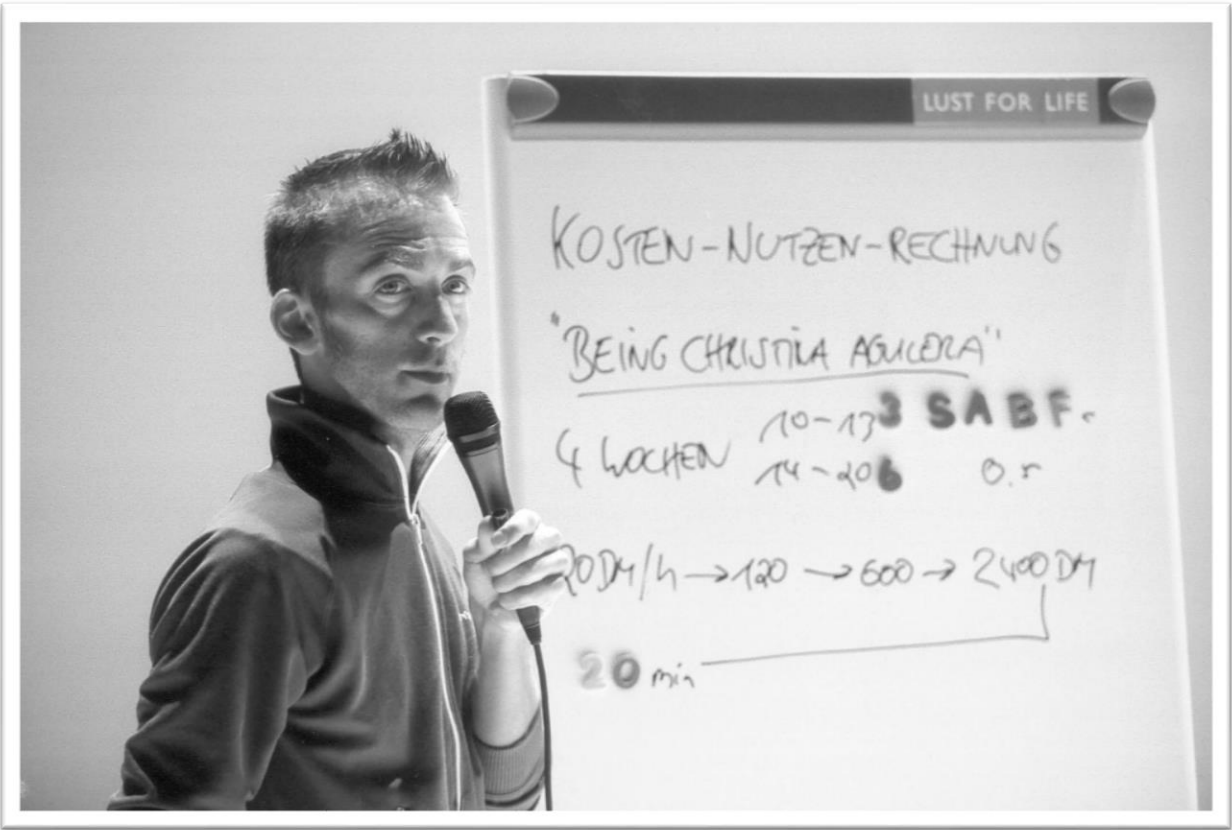 LUST FOR LIFE
KOSTEN-NUTZEN-RECHNUNG
"BEING CHRISTINA AGUILERA"
4 WOCHEN 10-13 3 SABF.
14-20 6 0.5
20DM/h → 120 → 600 → 2400DM
20 min